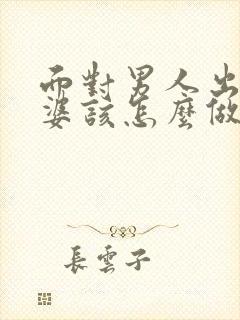 而對男人出
婆該怎麼做
長雲子